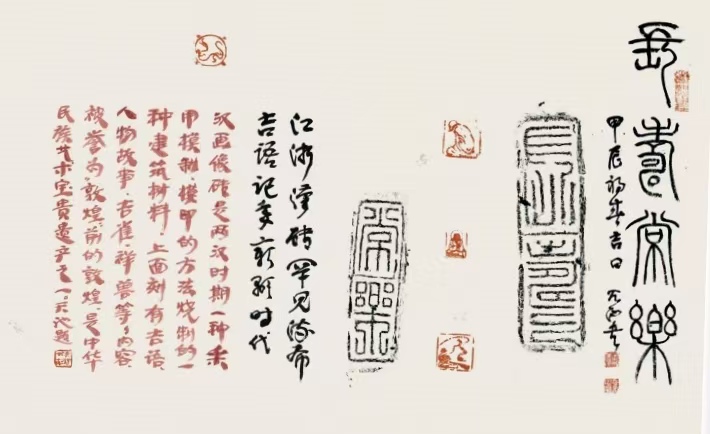 長壽常樂
甲辰初春吉日
常樂
江浙漢砖罕见流布
吉語記年彰顯时代
汉画像砖是两汉时期一种采
用模制、模印的方法烧制的一
种建筑材料上面刻有吉语
人物故事、吉雀、祥兽等々内容
被誉为敦煌前的敦煌、是中华
民族艺术宝贵遗产之一